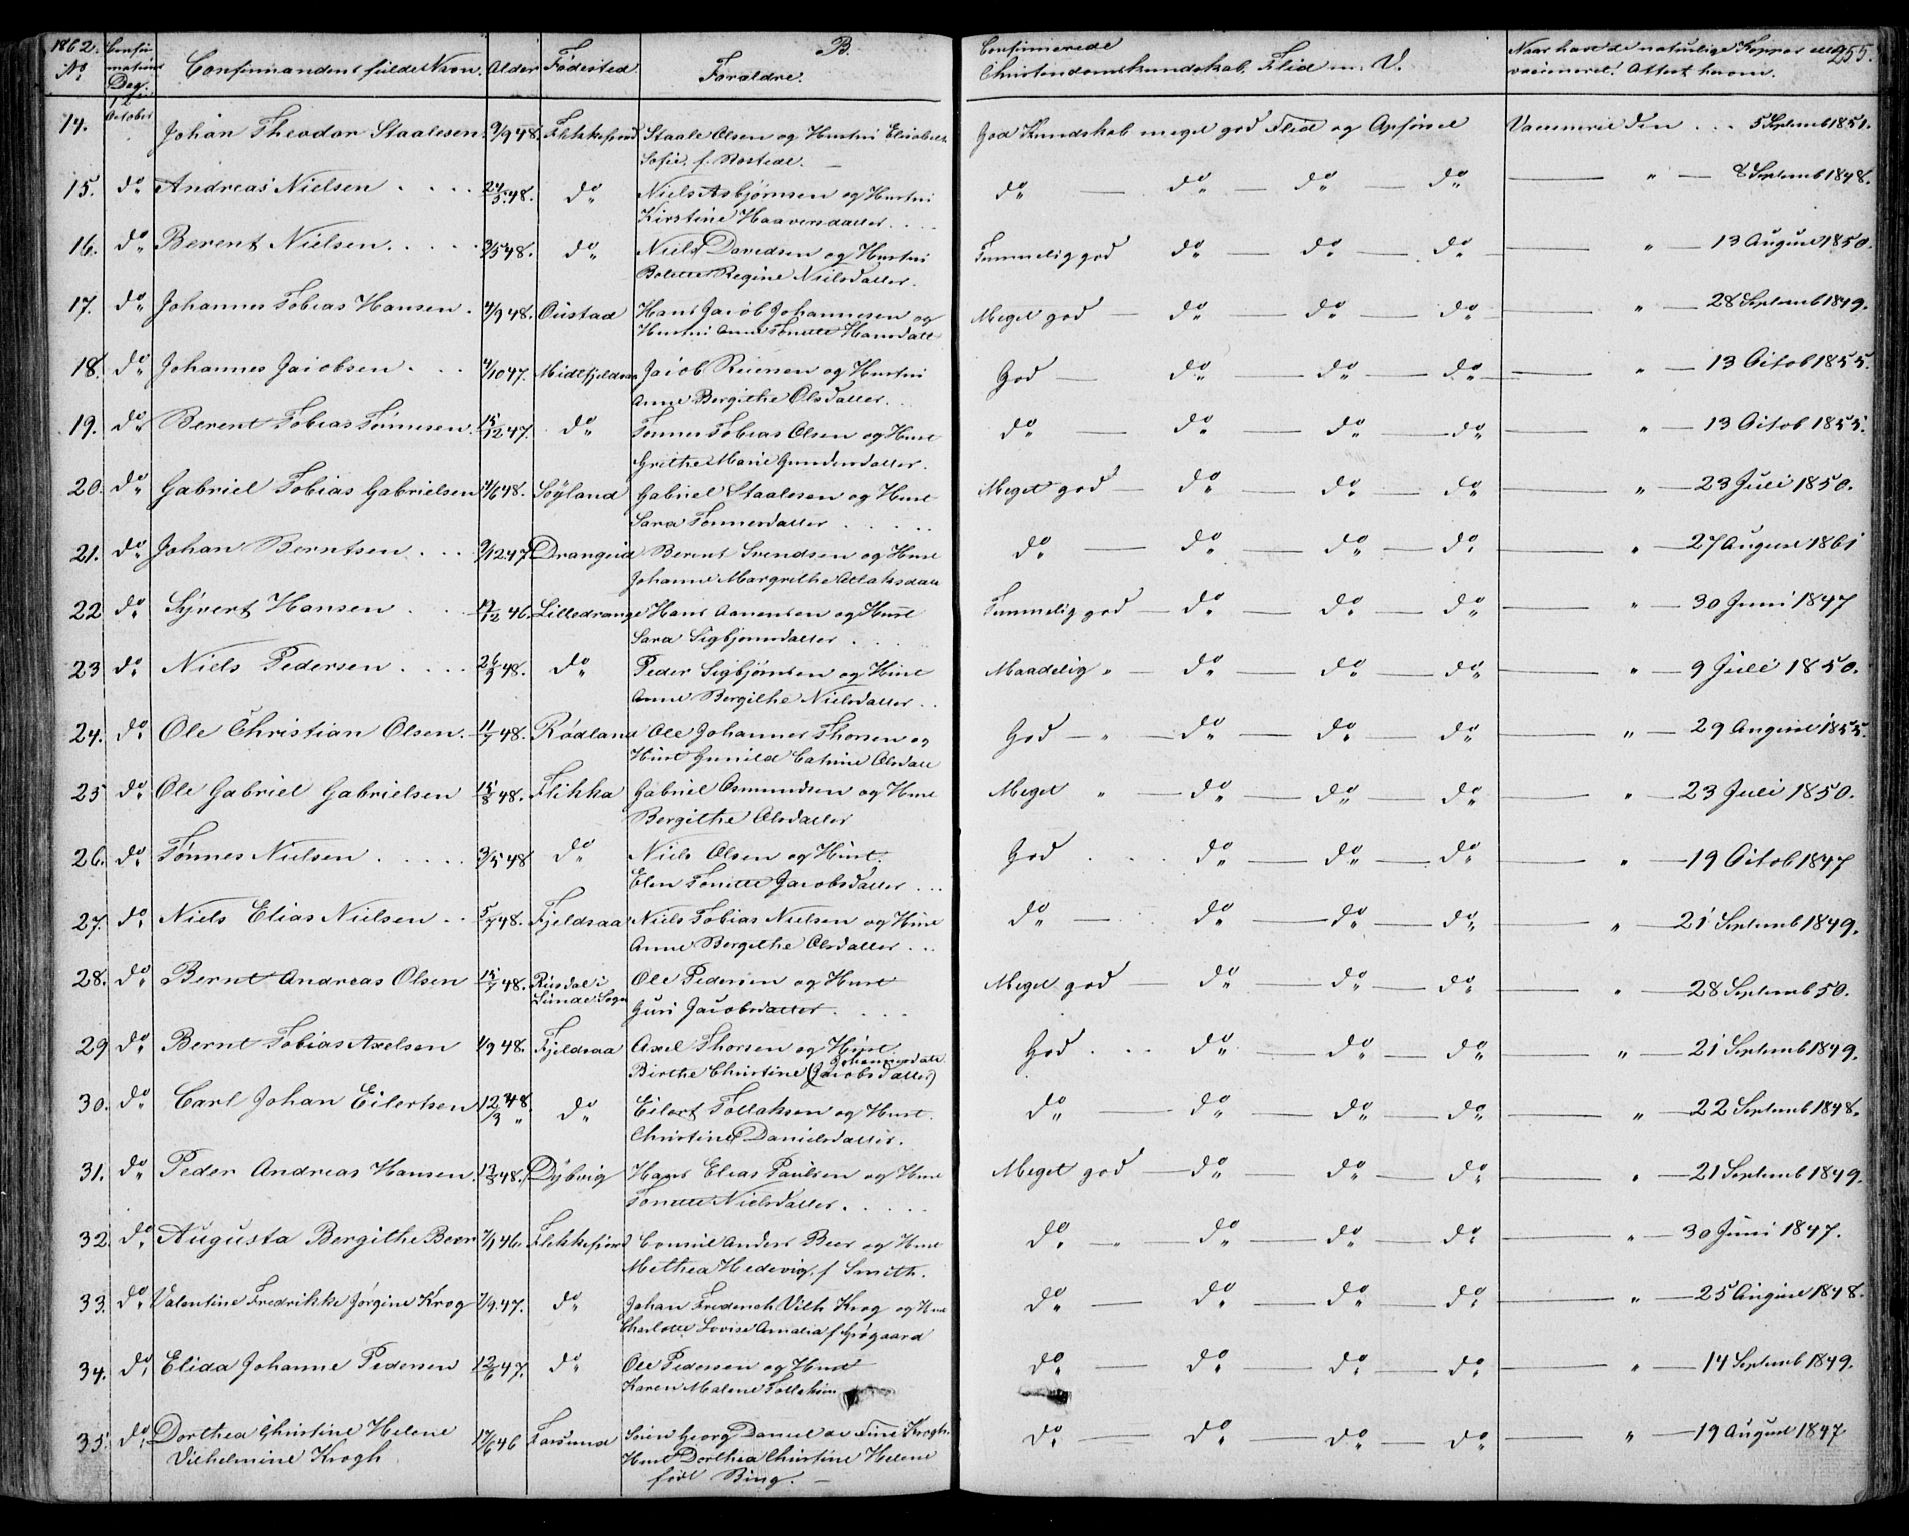 1862.
No
Confir
mations
Dag.
Confirmandens fulde Navn.
Alder
Fødested.
B.
Forældre.
Confirmerede
Christendomskundskab, Flid m. V.
Naar havt de naturlige Kopper eller
vaccineret. Attest herom.
255.
14. 12te October Johan Theodor Staalesen. 9/9 48. Flekkefiord Staale Olsen og Hustru Elisabeth God Kundskab meget god Flid og Opførsel Vaccineret den . . . 5 Septemb 1851.
Sofie, f. Rostede. —
15. do Andreas Nielsen . . . . 24/5 48. do Niels Asbjørnsen og Hustru do — do — do — do — " — 8 Septemb 1848.
Kirstine Haavorsdatter. . . .
16. do Berent Nielsen. . . . . 3/5 48. do Niels Davidsen og Hustru Temmelig god do — do — do — " — 13 August 1850.
Bolette Regine Nielsdatter.
17. do Johannes Tobias Hansen . 4/9 48. Oustad Hans Jacob Johannesen og Meget god — do — do — do — " — 28 Septemb 1849.
Hustru Anne Tonette Hansdatt
18. do Johannes Jacobsen . . . 4/10 47. Midtfjeldsaa Jacob Reiersen og Hustru God — do — do — do — " — 13 Octob 1855.
Anne Bergithe Olsdatter. . .
19. do Berent Tobias Tønnesen. 15/12 47. do Tønnes Tobias Olsen og Hust do — do — do — do — " — 13 Octob 1855.
Grethe Marie Gundersdatter.
20. do Gabriel Tobias Gabrielsen 4/6 48. Søyland Gabriel Staalesen og Hust Meget god do — do — do — " — 23 Juli 1850.
Sara Tønnesdatter . . . . .
21. do Johan Berntsen . . . 9/12 47 Drangeid Berent Svendsen og Hust do — do — do — do — " — 27 August 1861
Johanne Margrethe Atlaksdatt
22 do Syvert Hansen . . . 17/12 46. Lilledrange Hans Aanensen og Hust Temmelig god — do — do — do — " — 30 Juni 1847
Sara Sigbjørnsdatter . . .
23 do Niels Pedersen . . . . 26/3 48. do Peder Sigbjørnsen og Hust Maadelig " — do — do — do — " — 9 Juli 1850.
Anne Bergithe Nielsdatter . .
24. do Ole Christian Olsen. 11/7 48. Rødland Ole Johannes Thorsen og God — " — do — do — do — " — 29 August 1855.
Hust Gunild Catrine Olsdatt
25 do Ole Gabriel Gabrielsen 15/8 48. Flikka Gabriel Osmundsen og Hust Meget " — do — do — do — " — 23 Juli 1850.
Bergithe Olsdatter
26. do Tønnes Nielsen . . . . . 3/5 48 do Niels Olsen og Hust. God . . . . do — do — do — " — 19 Octob 1847
Elen Tonette Jacobsdatter . . .
27. do Niels Elias Nielsen . . 5/7 48. Fjeldsaa Niels Tobias Nielsen og Hust do — do — do — do — " — 21 Septemb 1849.
Anne Bergithe Olsdatter . . .
28. do Bernt Andreas Olsen 15/7 48. Risdal i Ole Pedersen og Hust Meget god — do — do — do — " — 28 Septemb 50.
Lunde Sogn Guri Jacobsdatter. . . . .
29 do Bernt Tobias Axelsen 4/9 48. Fjeldsaa Axel Thorsen og Hust God . . . do — do — do — " — 21 Septemb 1849.
Johannesdatt
Birthe Christine (Jacobsdatter)
30. do Carl Johan Eilertsen 12/3 48. do Eilert Tollaksen og Hust. do — do — do — do — " — 22 Septemb 1848.
Christine Danielsdatter.
31. do Peder Andreas Hansen. 13/8 48. Dybvig Hans Elias Paulsen og Hust Meget god — do — do — do — " — 21 Septemb 1849.
Tonette Nielsdatter. . . . . .
32. do Augusta Bergithe Beer 7/1 46. Flekkefiord Consul Anders Beer og Hust do . " — do — do — do — " — 30 Juni 1847.
Methea Hedevig, f Smith.
33. do Valentine Fredrikke Jørgine Krog 7/9 47. do Johan Frederich Vilh Krog og Hust do — do — do — do — " — 25 August 1848.
Charlotte Lovise Amalia f
34. do Elida Johanne Pedersen 12/6 47. do Ole Pedersen og Hust do — do — do — do — " — 14 Septemb 1849.
Karen Malene
35. do Dorthea Christine Helene 17/6 46 Farsund Georg Daniel Krogh. do — do — do — do — " — 19 August 1847
Vilhelmine Krogh Hust Dorthea Christine Helene
født Bing. —